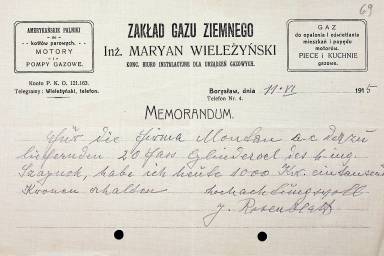 69
AMERYKAŃSKIE PALNIKI
do
kotłów parowych.
MOTORY
i
POMPY GAZOWE.
ZAKŁAD GAZU ZIEMNEGO
Inż. MARYAN WIELEŻYŃSKI
KONC. BIURO INSTALACYJNE DLA URZĄDZEŃ GAZOWYCH.
GAZ
do opalania i oświetlania
mieszkań i popędu
motorów.
PIECE i KUCHNIE
gazowe.
Konto P. K. O. 121.163.
Telegramy: Wieleżyński, telefon.
Borysław, dnia 11·VI 1915
Telefon Nr. 4.
MEMORANDUM.
Für die Firma Montan a.c. der zu
liefernden 20 Fass des Ing.
habe ich heute 1000 Kr. eintausend
Kronen erhalten hochachtungsvoll
J. Rosenblatt